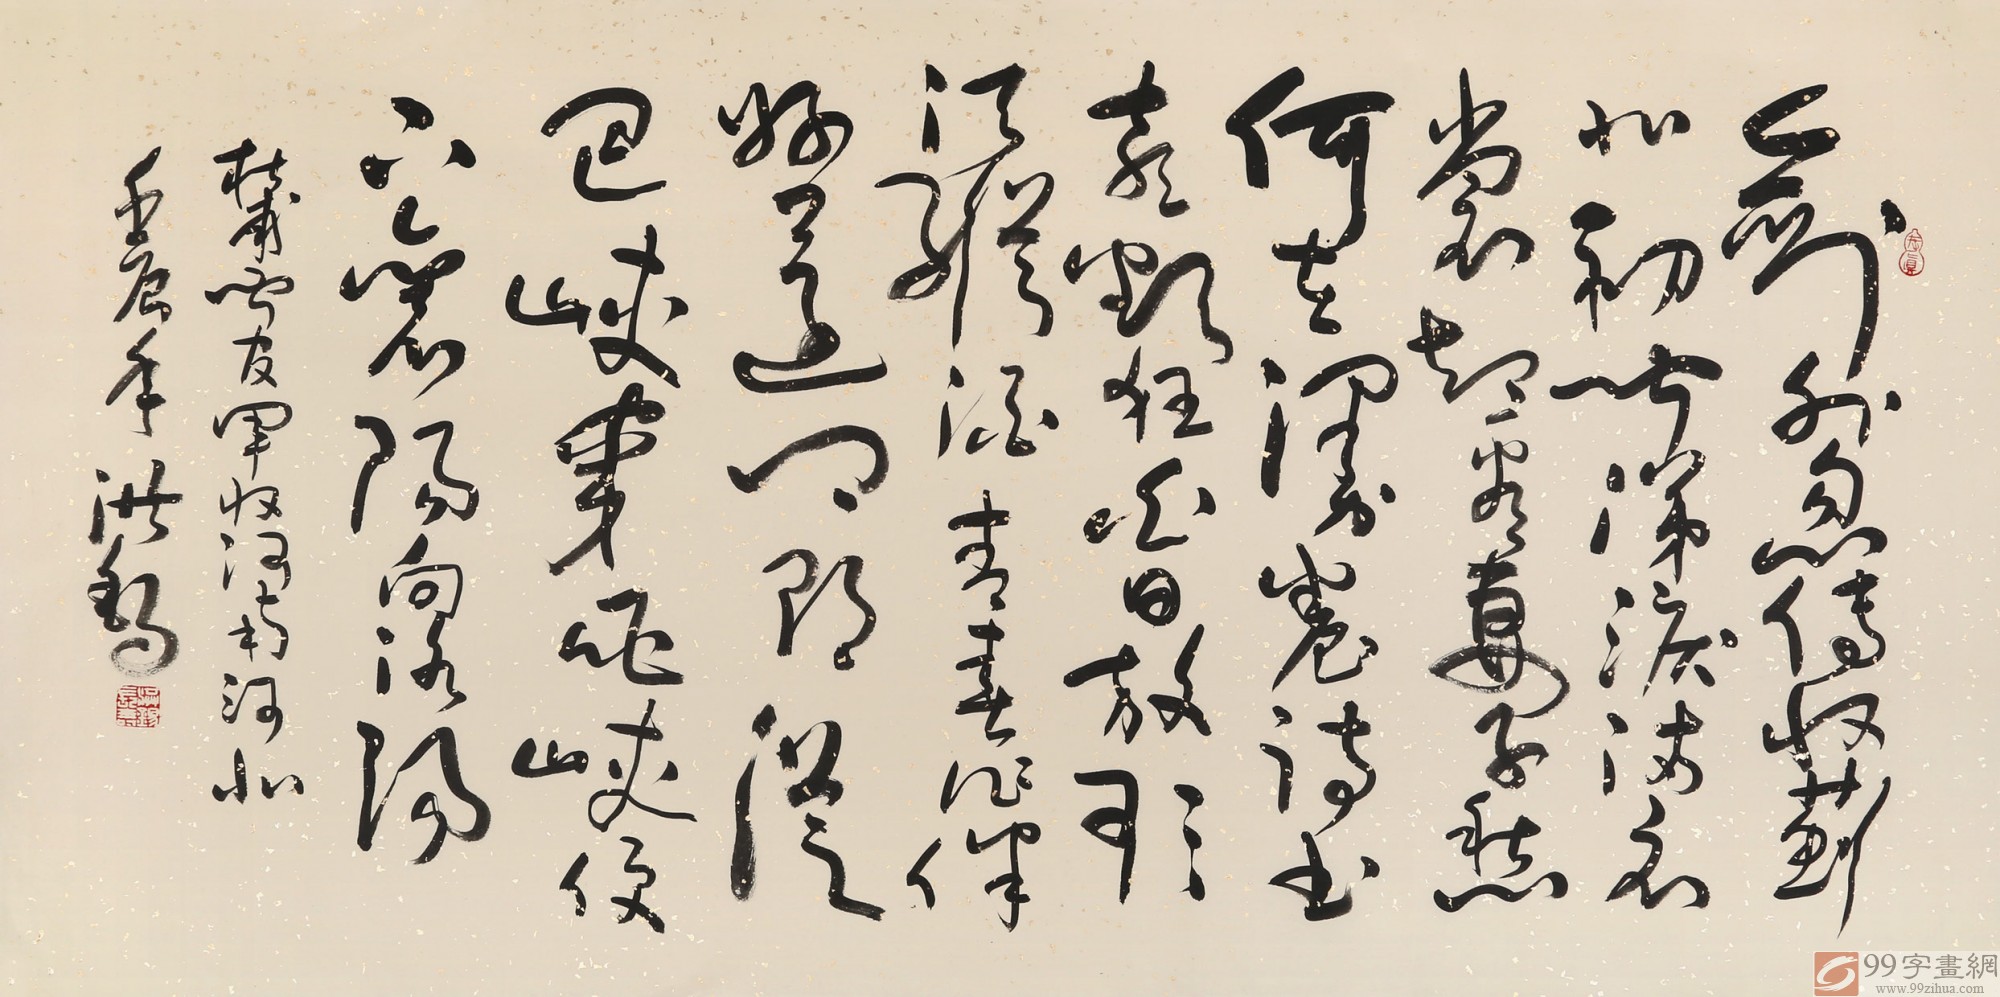 劍外忽傳收薊
北初聞涕淚滿衣
裳卻看妻子愁
何在漫卷詩書
喜欲狂白日放歌
須縱酒青春作伴
好還鄉即從
巴峽穿巫峽便
下襄陽向洛陽
杜甫聞官軍收河南河北
壬辰年洪
99字畫網
www.99zihua.com